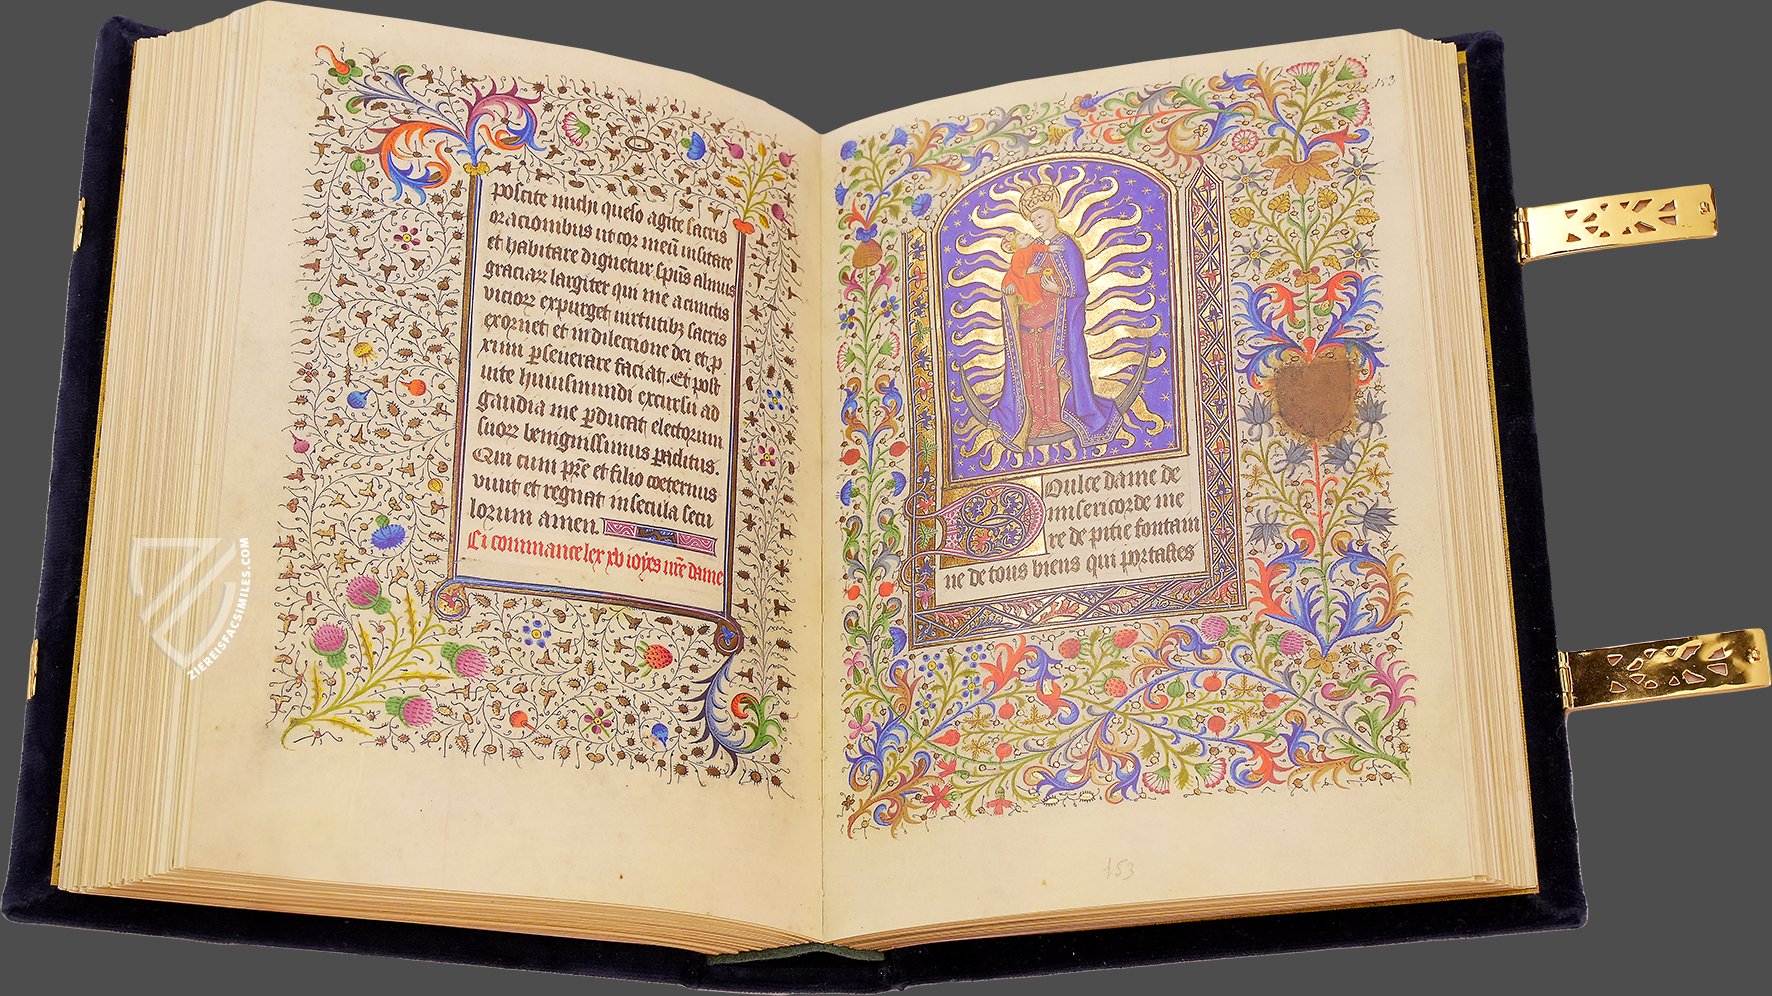 poscite michi queso agite sacris
oracionibus ut cor meū insitare
et habitare dignetur spūs almus
graciarꝫ largiter qui me a cunctis
viciorꝫ expurget uirtutibꝫ sacris
exornet et in dilectione dei et ꝓ
ximi ꝑseuerare faciat. Et post
uite huiusmundi excursū ad
gaudia me ꝑducat electorum
suorꝫ benignissimus ꝑaditus.
Qui cum pr̄e et filio coeternus
viuit et regnat in secula secu
lorum amen.
Ci commance lex xv ioyes nr̄e dame
153
Doulce dame de
misericorde me
re de pitie fontain
ne de tous biens qui portastes
153
ZIEREISFACSIMILES.COM